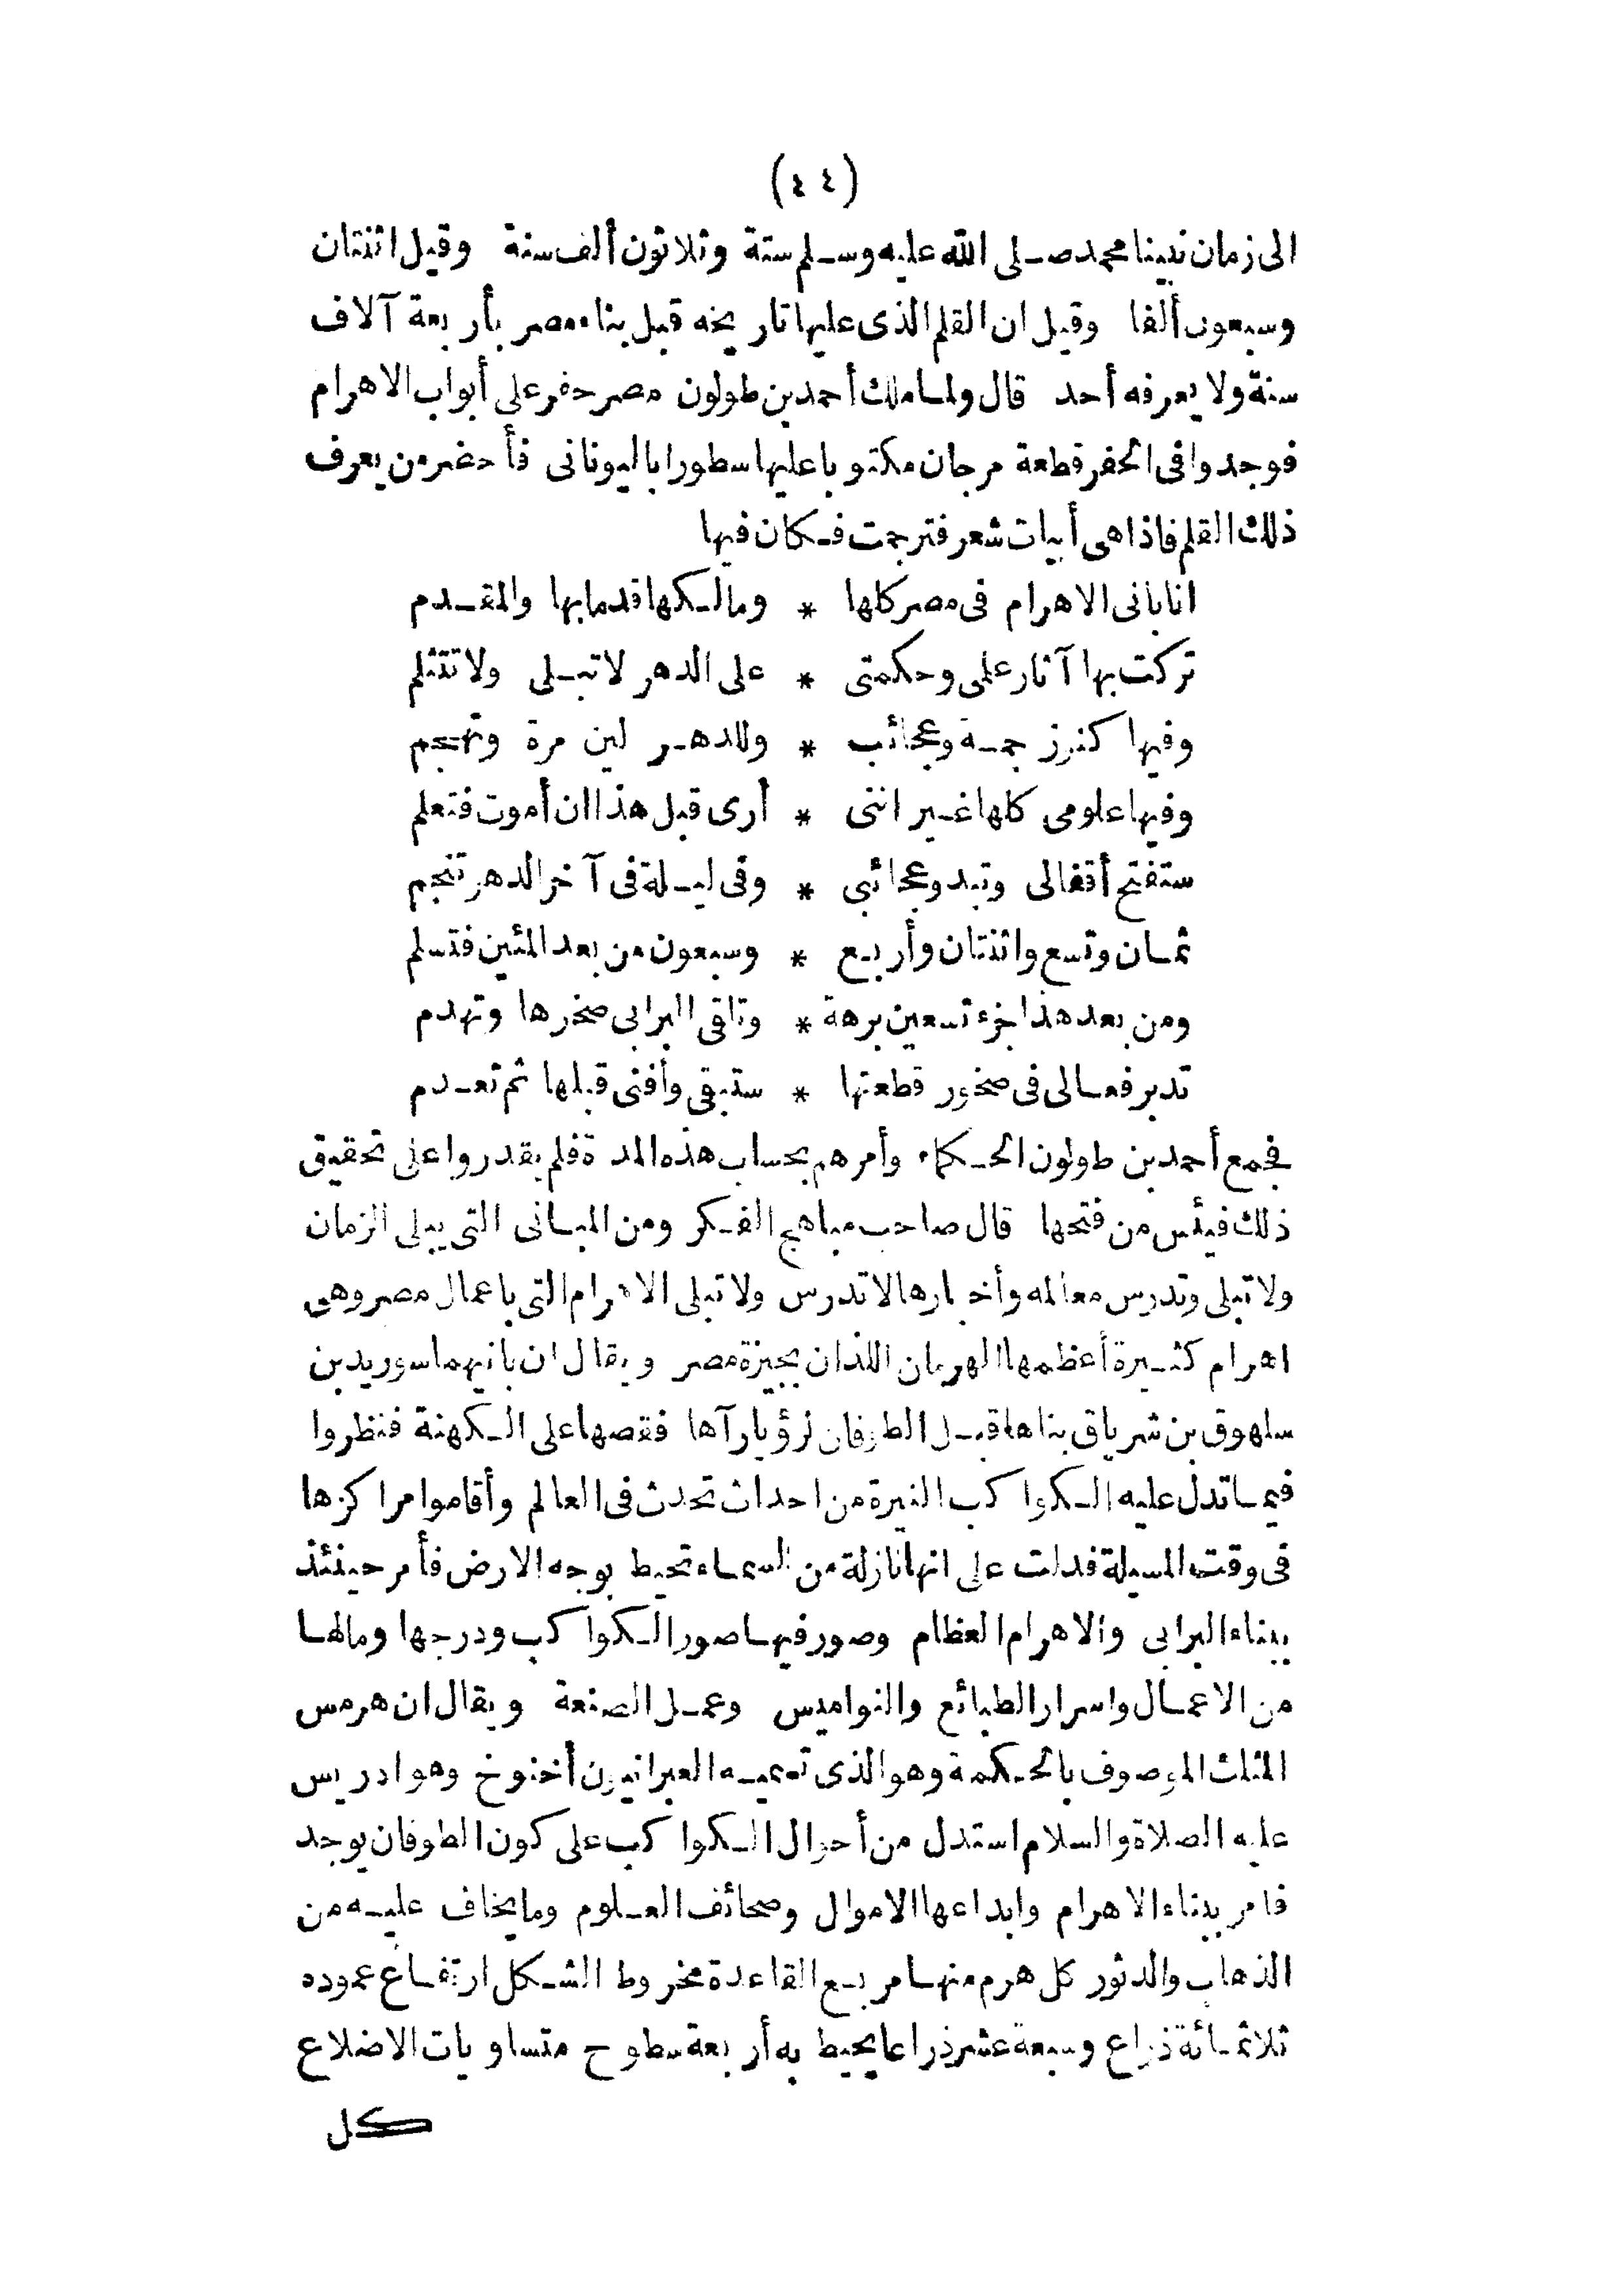 (٤٤)
الى زمان نبينا محمد صلى الله عليه وسلم ستة وثلاثون ألف سنة وقيل اثنتان
وسبعون ألفا وقيل ان القلم الذى عليها تاريخه قبل بناء مصر بأربعة آلاف
سنة ولا يعرفه أحد قال ولما ملك أحمد بن طولون مصر حفر على أبواب الاهرام
فوجدوا فى الحفر قطعة مرجان مكتوبا عليها سطورا باليونانى فأحضر من يعرف
ذلك القلم فاذا هى أبيات شعر فترجمت فكان فيها
انا بانى الاهرام فى مصر كلها * ومالكها قدما بها والمقدم
تركت بها آثار علمى وحكمتى * على الدهر لا تبلى ولا تتثلم
وفيها كنوز جمة وعجائب * وللدهر لين مرة وتهجم
وفيها علومى كلها غير اننى * أرى قبل هذا ان أموت فتعلم
ستفتح أقفالى وتبدو عجائبى * وفى ليلة فى آخر الدهر تنجم
ثمان وتسع واثنتان وأربع * وسبعون من بعد المئين فتسلم
ومن بعد هذا جزء تسعين برهة * وتلقى البرابى صخرها وتهدم
تدبر فعالى فى صخور قطعتها * ستبقى وأفنى قبلها ثم تعدم
فجمع أحمد بن طولون الحكماء وأمرهم بحساب هذه المدة فلم يقدروا على تحقيق
ذلك فيئس من فتحها قال صاحب مباهج الفكر ومن المبانى التى يبلى الزمان
ولا تبلى وتدرس معالمه وأخبارها لا تدرس ولا تبلى الاهرام التى باعمال مصر وهى
اهرام كثيرة أعظمها الهرمان اللذان بجيزة مصر ويقال ان بانيهما سوريد بن
سلهوق بن شرياق بناهما قبل الطوفان لرؤيا رآها فقصها على الكهنة فنظروا
فيما تدل عليه الكواكب النيرة من احداث تحدث فى العالم وأقاموا مراكزها
فى وقت المسيلة فدلت على انها نازلة من السماء تحيط بوجه الارض فأمر حينئذ
ببناء البرابى والاهرام العظام وصور فيها صور الكواكب ودرجها ومالها
من الاعمال واسرار الطبائع والنواميس وعمل الصنعة ويقال ان هرمس
المثلث الموصوف بالحكمة وهو الذى تسميه العبرانيون أخنوخ وهو ادريس
عليه الصلاة والسلام استدل من أحوال الكواكب على كون الطوفان يوجد
فامر ببناء الاهرام وايداعها الاموال وصحائف العلوم وما يخاف عليه من
الذهاب والدثور كل هرم منها مربع القاعدة مخروط الشكل ارتفاع عموده
ثلاثمائة ذراع وسبعة عشر ذراعا يحيط به أربعة سطوح متساويات الاضلاع
كل